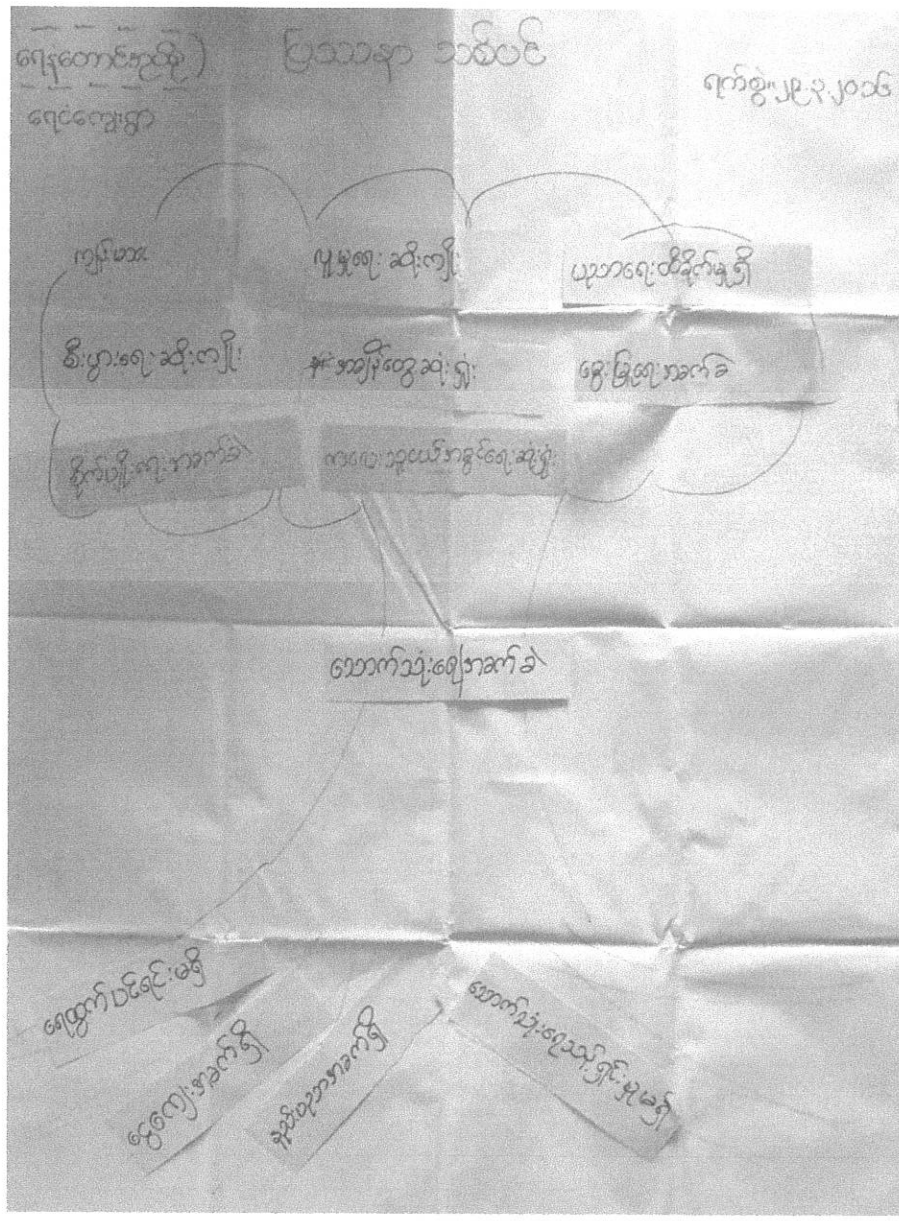 ရေနံတောင်အုပ်စု) ပြဿနာ သစ်ပင်
ရက်စွဲ။၂၉.၃.၂၀၁၆
ရေငံကျေးရွာ
ကျန်းမာ လူမှုရေး ဆိုးကျိုး ပညာရေးထိခိုက်မှုရှိ
စီးပွားရေးဆိုးကျိုး အချိန်တွေဆုံးရှုံး မွေးမြူရေးအခက်ခဲ
စိုက်ပျိုးရေးအခက်ခဲ ကလေးသူငယ်အခွင့်ရေးဆုံးရှုံး
သောက်သုံးရေအခက်ခဲ
ရေထွက်ပင်ရင်းမရှိ
ငွေကျေးအခက်ရှိ
နည်းပညာအခက်ရှိ
သောက်သုံးရေသန့်ရှင်းမှုမရှိ